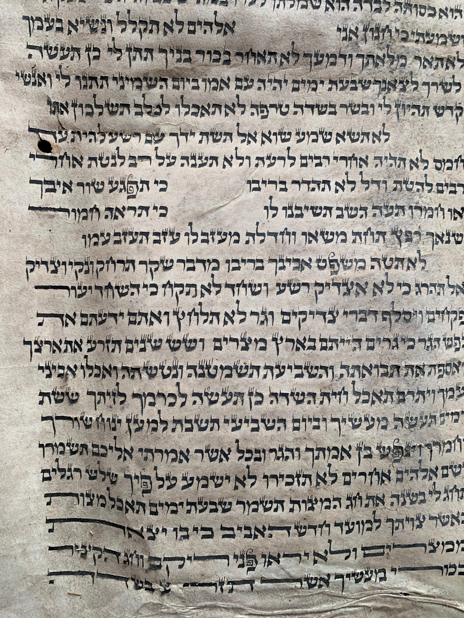 הוא כסותה לבדה הוא שמלתו
ושמעתי כי חנון אני אלהים לא תקלל ונשיא בעמך
לא תאר מלאתך ודמעך לא תאחר בכור בניך תתן לי כן תעשה
לשרך לצאנך שבעת ימים יהיה עם אמו ביום השמיני תתנו לי ואנשי
קדש תהיון לי ובשר בשדה טרפה לא תאכלו לכלב תשלכון אתו
לא תשא שמע שוא אל תשת ידך עם רשע להית עד
חמס לא תהיה אחרי רבים לרעת ולא תענה על רב לנטת אחרי
רבים להטת ודל לא תהדר בריבו כי תפגע שור איבך
או חמרו תעה השב תשיבנו לו כי תראה חמור
שנאך רבץ תחת משאו וחדלת מעזב לו עזב תעזב עמו
לא תטה משפט אבינך בריבו מדבר שקר תרחק ונקי וצדיק
אל תהרג כי לא אצדיק רשע ושחד לא תקח כי השחד יעור
פקחים ויסלף דברי צדיקים וגר לא תלחץ ואתם ידעתם את
נפש הגר כי גרים הייתם בארץ מצרים ושש שנים תזרע את ארצך
ואספת את תבואתה והשביעת תשמטנה ונטשתה ואכלו אביני
עמך ויתרם תאכל חית השדה כן תעשה לכרמך לזיתך ששת
ימים תעשה מעשיך וביום השביעי תשבת למען ינוח שורך
וחמרך וינפש בן אמתך והגר ובכל אשר אמרתי אליכם תשמרו
ושם אלהים אחרים לא תזכירו לא ישמע על פיך שלש רגלים
תחג לי בשנה את חג המצות תשמר שבעת ימים תאכל מצות
כאשר צויתך למועד חדש האביב כי בו יצאת
ממצרים ולא יראו פני ריקם וחג הקציר
בכורי מעשיך אשר תזרע בשדה